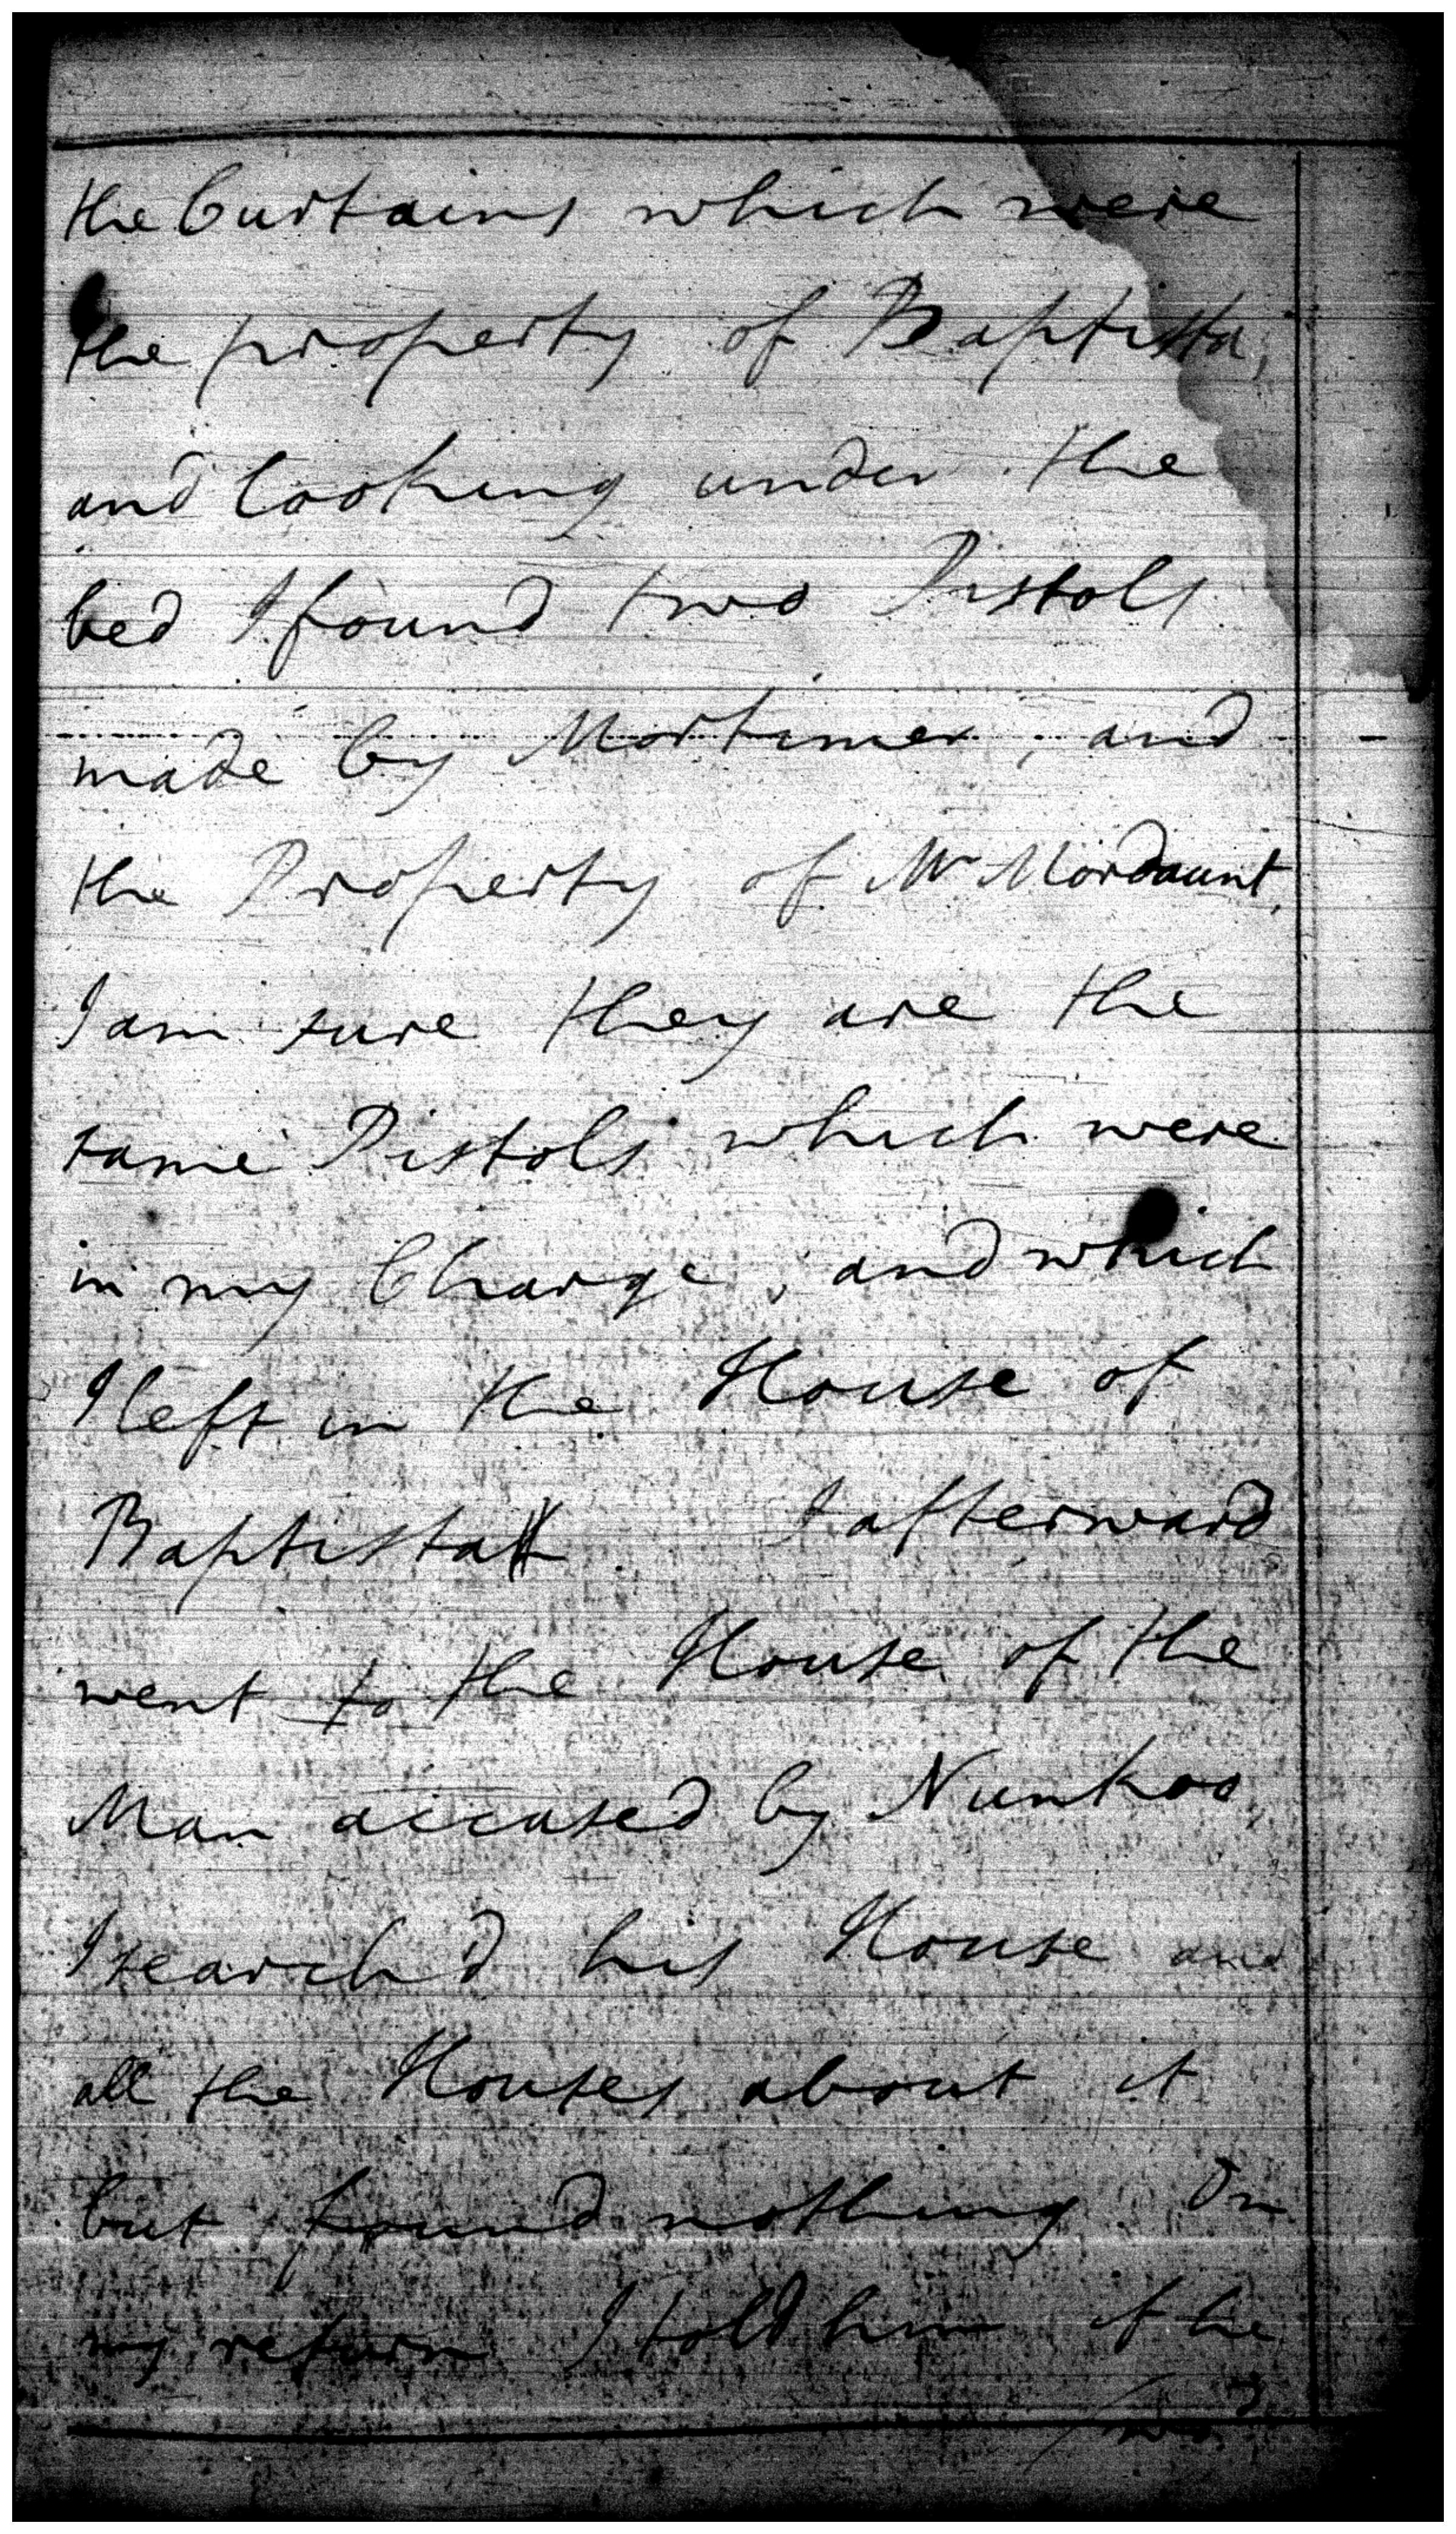 the Curtains which were
the property of Baptista,
and looking under the
bed I found two Pistols
made by Mortimer, and
the Property of Mr Mordaunt,
I am sure they are the
same Pistols which were
in my Charge, and which
I left in the House of
Baptista. I afterward
went to the House of the
Man accused by Nunkoo,
I search'd his House and
all the Houses about it
but found nothing On
my return I told him if he